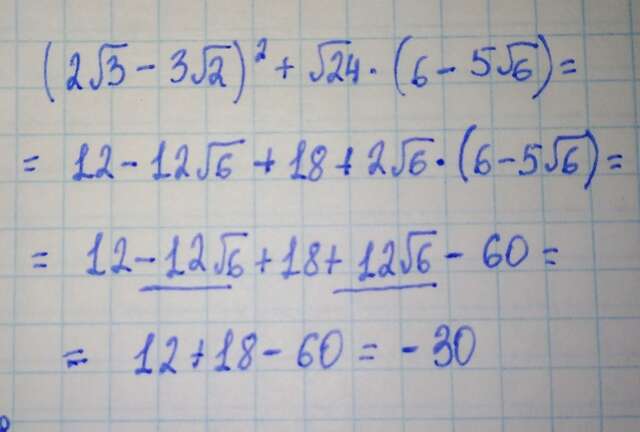 (2√3 - 3√2)² + √24 · (6 - 5√6) =
= 12 - 12√6 + 18 + 2√6 · (6 - 5√6) =
= 12 - 12√6 + 18 + 12√6 - 60 =
= 12 + 18 - 60 = - 30